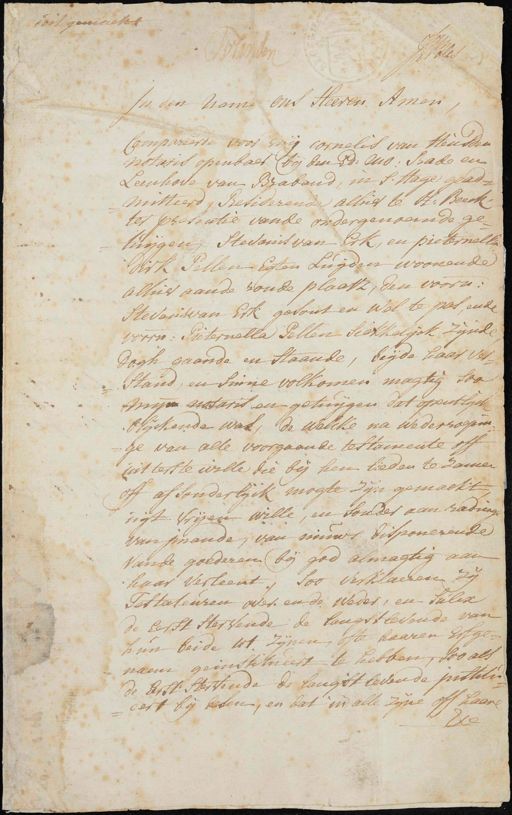 In den Name ons Heeren Amen,
Compareerde voor mij Cornelis van Heusden
notaris openbaar bij den Ed: Hove: Rade en
Leenhove van Braband, in s'Hage gead=
=mitteerd, Residerende alhier te
ter presentie vande ondergenoemde ge=
tuijgen, Stevanis van Erk, en pieternella
Dirk Pellen Egten Luijden woonende
alhier aande ronde plaats, den voorn:
Stevanis van Erk gesont en wel te pas, ende
voorn: Pieternella Pellen Siekkelijk zijnde
dogh gaande en Staande, bijde haar ver=
=stand, en Sinne volkomen magtig Soo
mijn notaris en getuijgen dat
blijkende was, de welke na wederroepin=
=ge van alle voorgaande testamente off
uitterste wille die bij hen lieden te Zamen
off afsonderlijk mogte zijn gemaakt
uijt vrijen wille, en sonder aanradinge
van imande, van nieuws disponerende
vande goederen bij god almagtig aan
haar verleent, Soo verklaeren zij
Testateuren over en de weder, en
de Eerst Stervende de langstlevende van
hun beide tot zijnen, ofte haeren Erfge=
naem geinstitueert te hebben, soo als
de Eerst Stervende de langst levende
=eert bij desen, en dat in alle zijne off haare